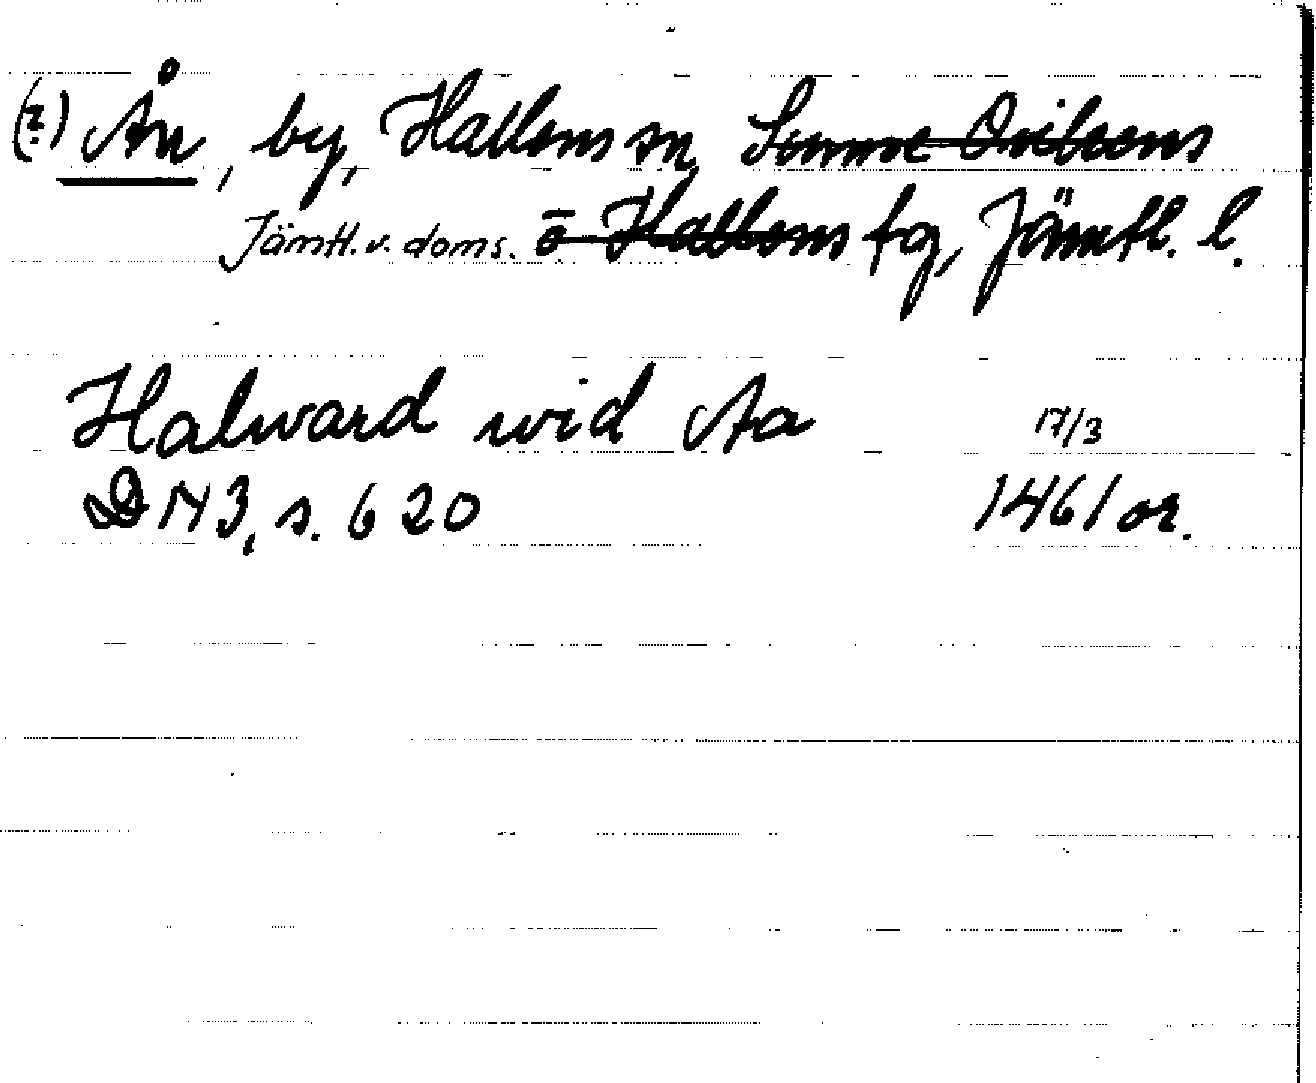 (?) Ån, by, Hallens sn, Sunne Ovikens
Jämtl. v. doms. o Hallens tg, Jämtl. l.
Halward wid Aa 17/3
DN 3, s. 620 1461 or.